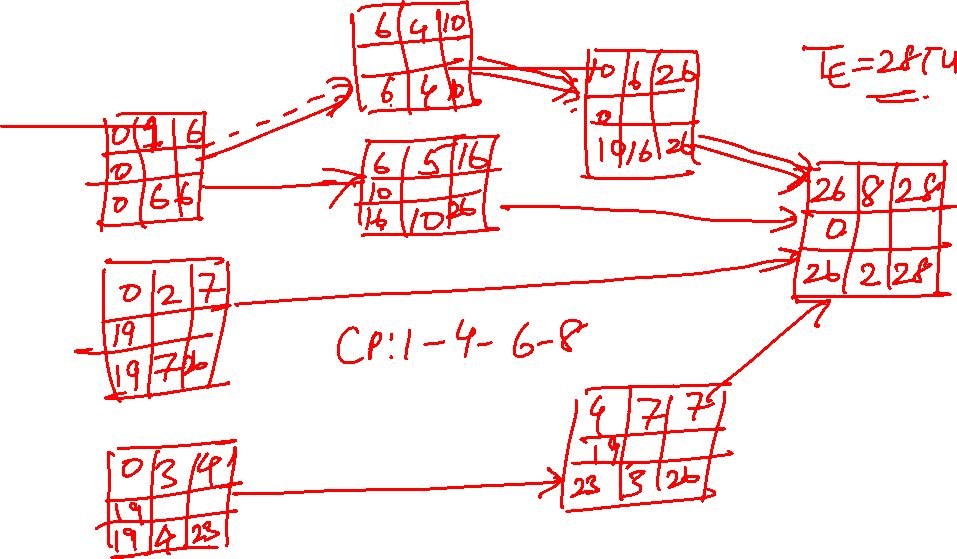 6 4 10
6 4 10
10 6 26
0
10 16 26
TE = 28TU
0 1 6
0
0 6 6
6 5 16
10
16 10 26
26 8 28
0
26 2 28
0 2 7
19
19 7 26
CP: 1 - 4 - 6 - 8
4 7 7
19
23 3 26
0 3 4
19
19 4 23